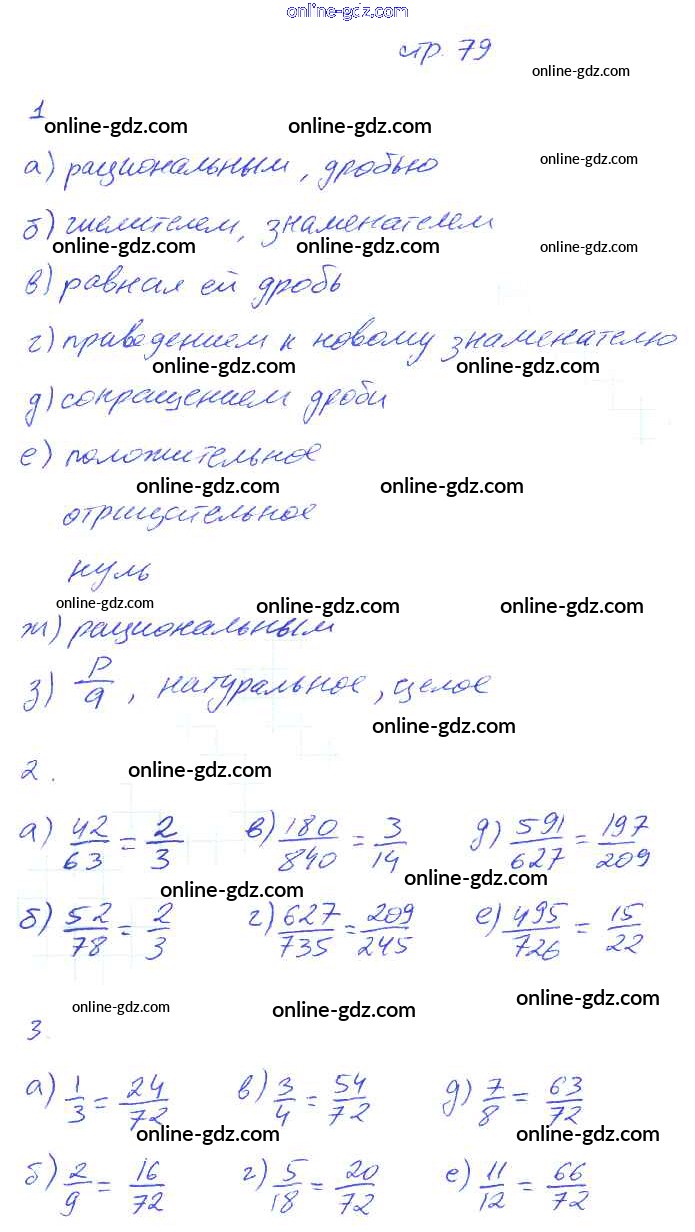 online-gdz.com
стр. 79
online-gdz.com
1
online-gdz.com online-gdz.com
а) рациональным, дробью online-gdz.com
б) числителем, знаменателем
online-gdz.com online-gdz.com online-gdz.com
в) равная ей дробь
г) приведением к новому знаменателю
online-gdz.com online-gdz.com
д) сокращением дроби
е) положительное
online-gdz.com online-gdz.com
отрицательное
нуль
online-gdz.com online-gdz.com online-gdz.com
ж) рациональным
з) p/q, натуральное, целое
online-gdz.com
2. online-gdz.com
а) 42/63 = 2/3 в) 180/840 = 3/14 д) 591/627 = 197/209
online-gdz.com online-gdz.com
б) 52/78 = 2/3 г) 627/735 = 209/245 е) 495/726 = 15/22
online-gdz.com online-gdz.com online-gdz.com
3.
а) 1/3 = 24/72 в) 3/4 = 54/72 д) 7/8 = 63/72
online-gdz.com online-gdz.com
б) 2/9 = 16/72 г) 5/18 = 20/72 е) 11/12 = 66/72